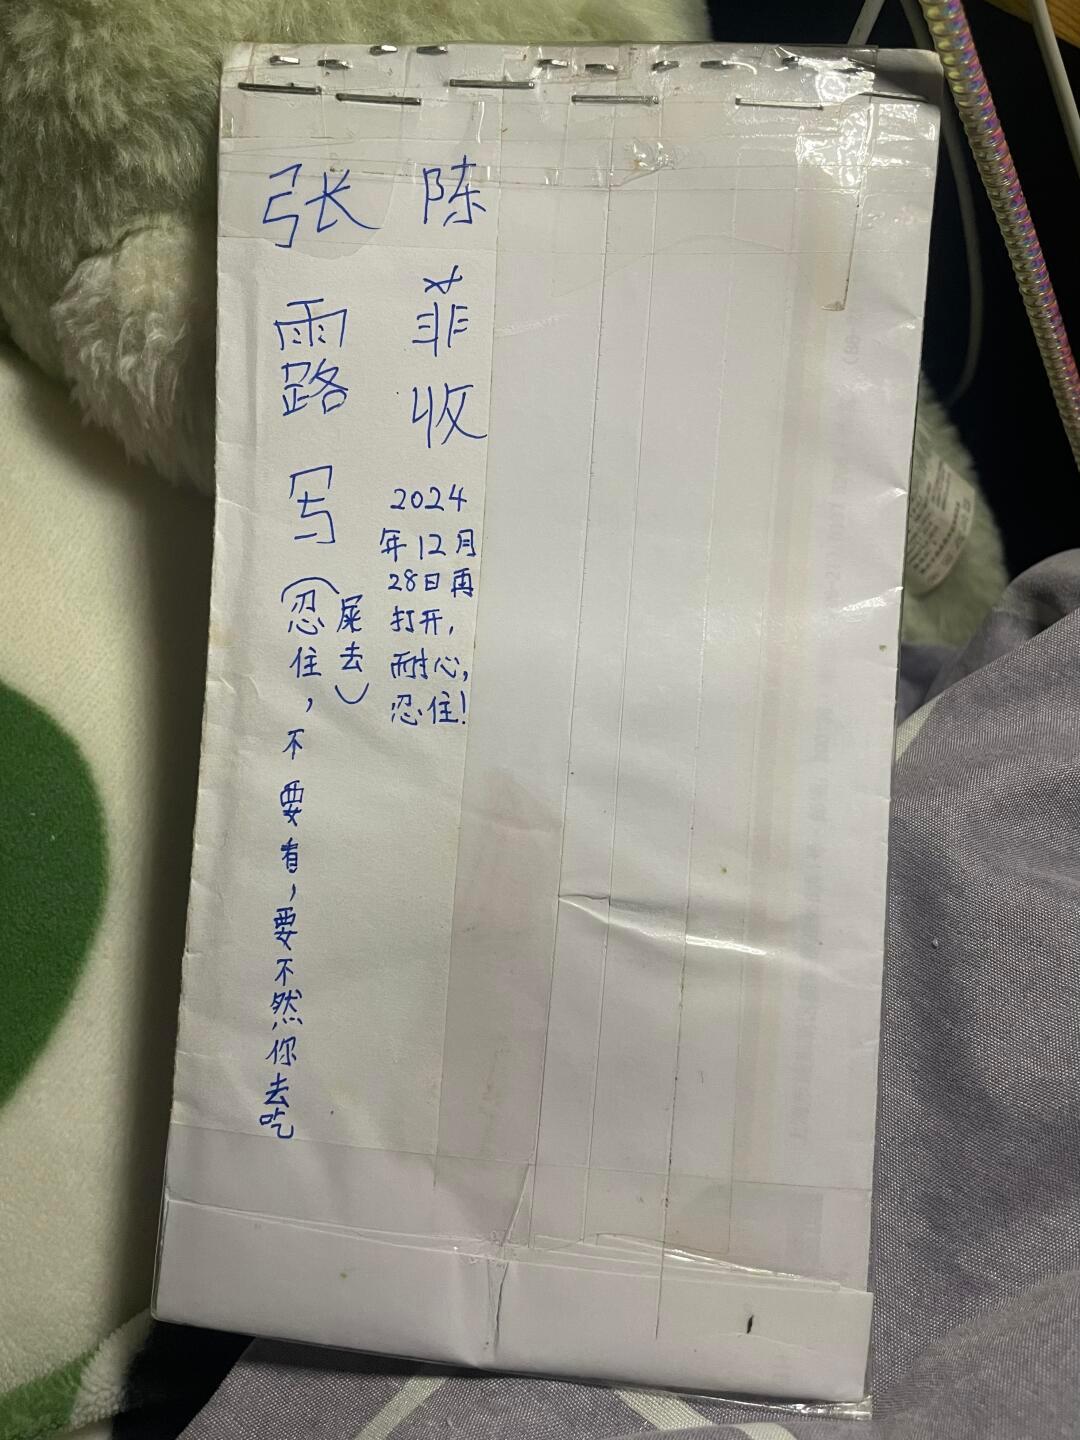 张露写(忍住,不要看,要不然你去吃
屎去)
陈菲收
2024
年12月
28日再
打开,
耐心,
忍住!